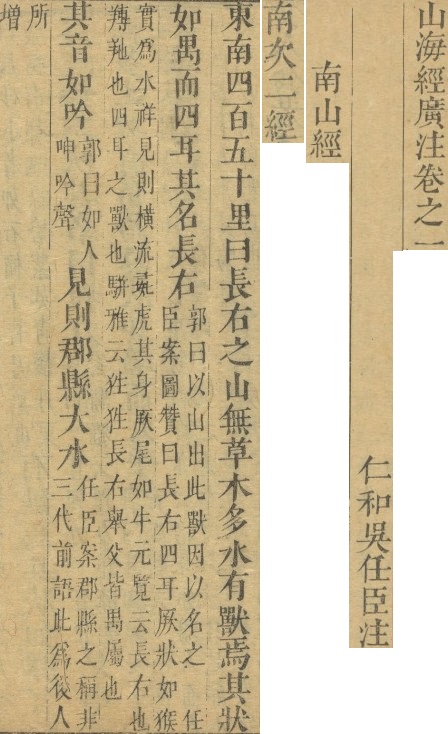 山海經廣注卷之一
仁和吳任臣注
南山經
南次二經
東南四百五十里曰長右之山無草木多水有獸焉其狀
如禺而四耳其名長右
郭曰以山出此獸因以名之 任
臣案圖贊曰長右四耳厥狀如猴
實爲水祥見則橫流彘虎其身厥尾如牛元覽云長右也
也四耳之獸也駢雅云狌狌長右舉父皆禺屬也
其音如吟
郭曰如人
呻吟聲
見則郡縣大水
任臣案郡縣之稱非
三代前語此爲後人
所
增